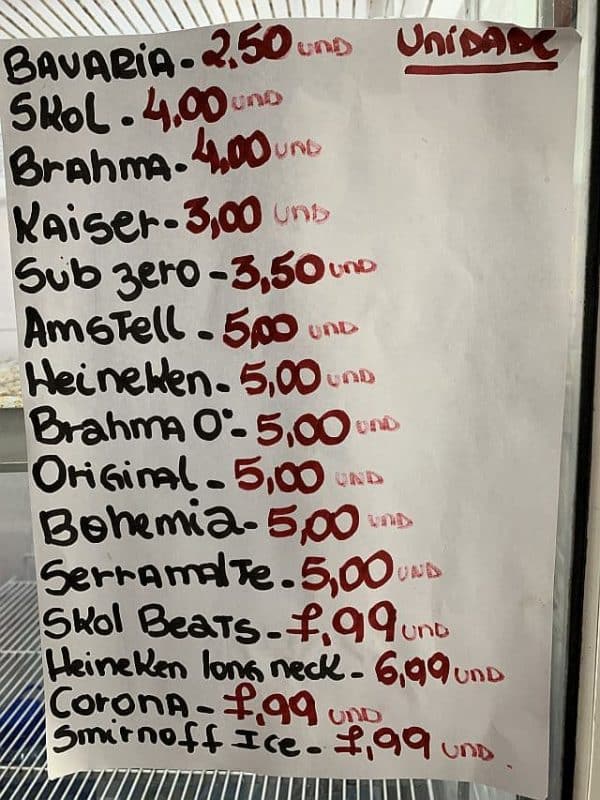 UNIDADE
BAVARIA - 2,50 UND
SKOL - 4,00 UND
BrAhmA - 4,00 UND
KAiSer - 3,00 UND
Sub zero - 3,50 UND
AmSTell - 5,00 UND
HeineKen - 5,00 UND
BrahmA 0° - 5,00 UND
OriGinAL - 5,00 UND
Bohemia - 5,00 UND
SerrAmalTe - 5,00 UND
SKol BeaTS - 7,99 UND
HeineKen lonG neck - 6,99 UND
CoronA - 7,99 UND
Smirnoff Ice - 7,99 UND.